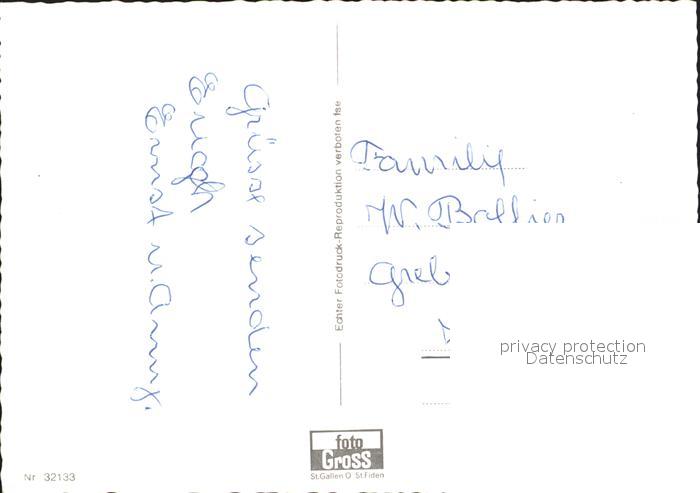 Grüsse senden
Euch
Ernst u. Anny.
Echter Fotodruck-Reproduktion verboten fse
Familie
W.
privacy protection
Datenschutz
foto
Gross
St.Gallen O St.Fiden
Nr 32133